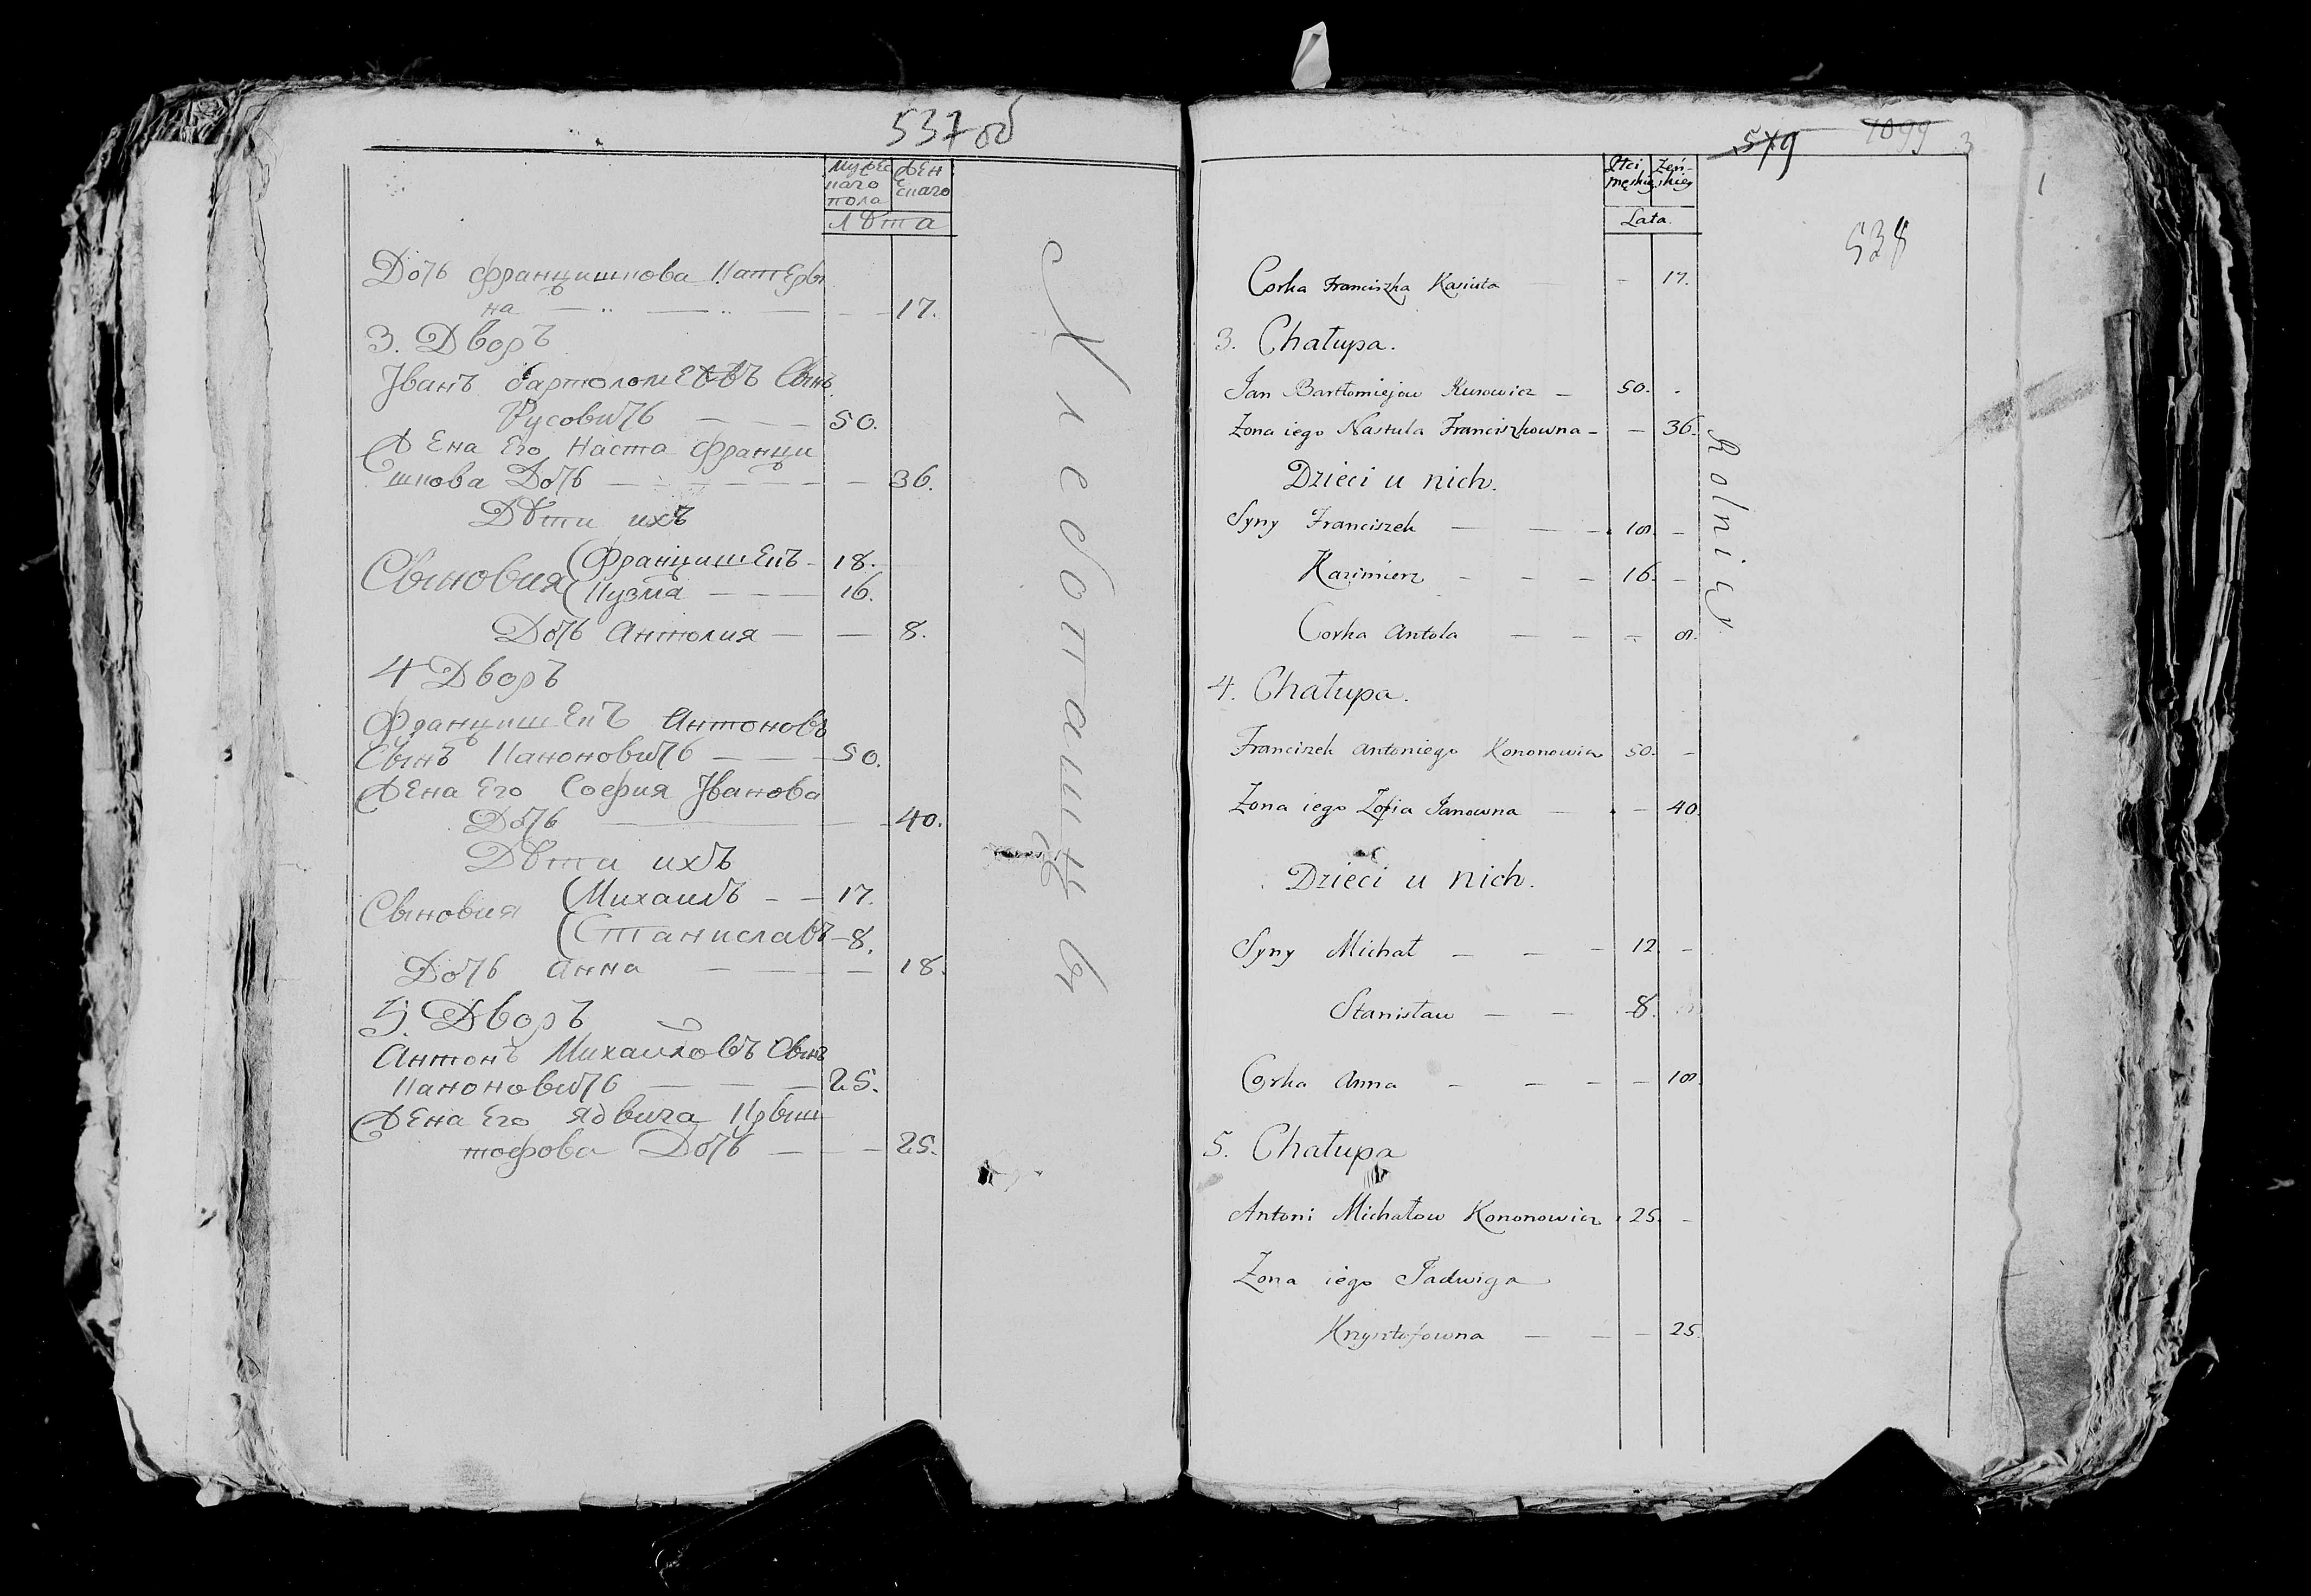 537 об
Мужес
каго
пола
Жен
скаго
Лѣта
Дочь Францишкова Катеры
на — — — 17.
3. Дворъ
Иванъ Бартоломеевъ Сынъ
Русовичь — — — 50.
Жена Его Наста Франци
шкова Дочь — — — 36.
Дѣти ихъ
Сыновия (Францишекъ - 18.
(Кузма — — — 16.
Дочь Антолия — — 8.
4 Дворъ
Францишекъ Антоновъ
Сынъ Канановичь — — — 50.
Жена Его София Иванова
Дочь — — 40.
Дѣти ихъ
Сыновия (Михаилъ — — 17.
(Станиславъ — 8.
Дочь Анна — — — 18.
5. Дворъ
Антонъ Михайловъ Сынъ
Канановичь — — — 25.
Жена Его Ядвига Крыш
тофова Дочь — — — 25.
Хлебопашцы
579 1099 3
538
Płci
męskiey
Żeń-
skiey
Lata.
Corka Franciszka Kasiuta — — 17.
3. Chałupa.
Jan Bartłomiejow Kurowicz — 50. -
Żona iego Nastula Franciszkowna — — 36.
Dzieci u nich.
Syny Franciszek — — — 18. —
Kazimierz — — — 16. —
Corka Antola — — — 8.
Rolnicy
4. Chałupa.
Franciszek Antoniego Kononowicz 50. —
Żona iego Zofia Janowna — — 40.
Dzieci u nich.
Syny Michał — — — 12. —
Stanisław — — 8.
Corka Anna — — — — 18.
5. Chałupa
Antoni Michałow Kononowicz 25. —
Żona iego Jadwiga
Krzysztofowna — — — 25.